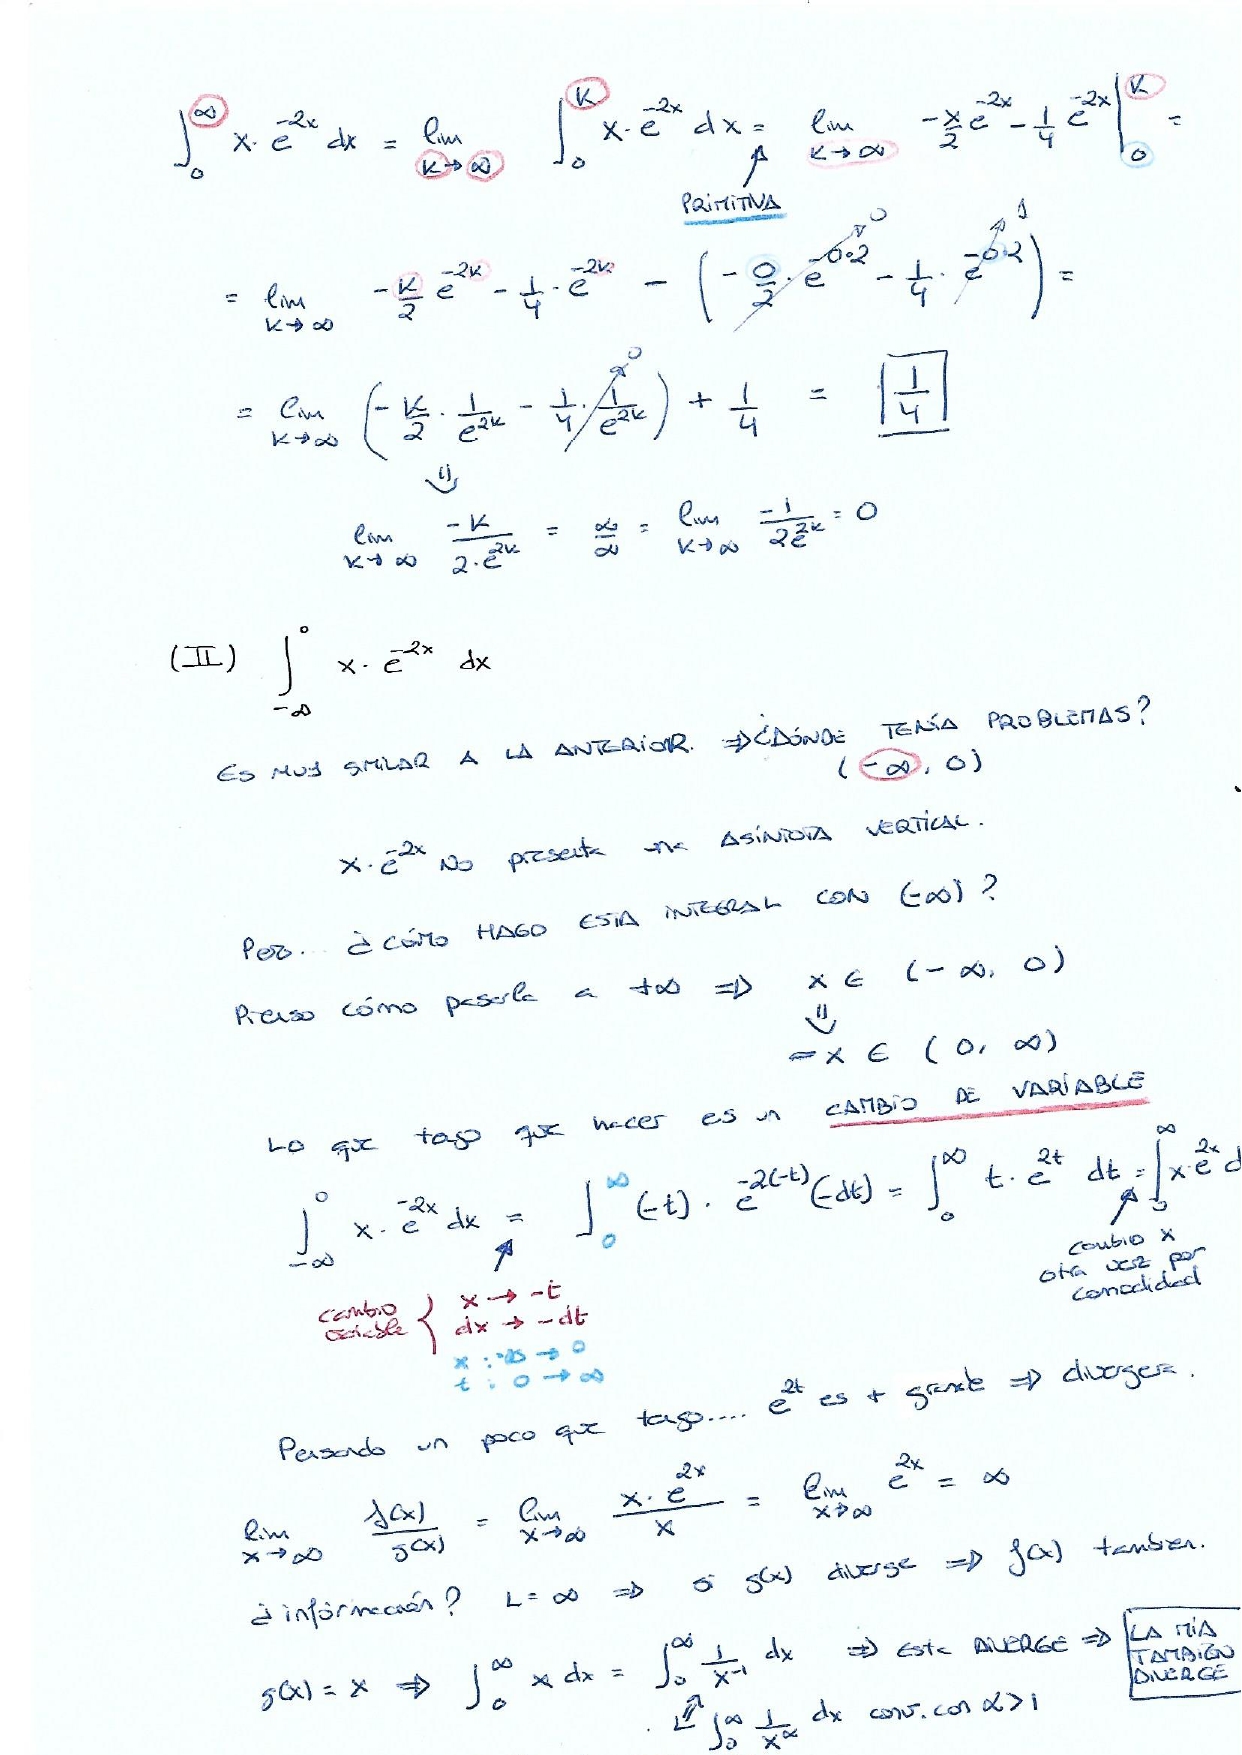 ∫₀^∞ x·e^{-2x} dx = lim_{k→∞} ∫₀^k x·e^{-2x} dx = lim_{k→∞} -x/2 e^{-2x} - 1/4 e^{-2x} |₀^k =
PRIMITIVA
= lim_{k→∞} -k/2 e^{-2k} - 1/4·e^{-2k} - (-0/2·e^{-0·2} - 1/4·e^{-0·2}) =
0 1
= lim_{k→∞} (-k/2·1/e^{2k} - 1/4·1/e^{2k}) + 1/4 = 1/4
0
⇓
lim_{k→∞} -k/(2·e^{2k}) = ∞/∞ = lim_{k→∞} -1/(2e^{2k}) = 0
(II) ∫_{-∞}^0 x·e^{-2x} dx
ES MUY SIMILAR A LA ANTERIOR. ⇒ ¿DÓNDE TENÍA PROBLEMAS?
(-∞, 0)
x·e^{-2x} NO presenta una ASÍNTOTA VERTICAL.
Pero... ¿CÓMO HAGO ESTA INTEGRAL CON (-∞)?
Pienso cómo pasarla a +∞ ⇒ x ∈ (-∞, 0)
⇓
-x ∈ (0, ∞)
Lo que tengo que hacer es un CAMBIO DE VARIABLE
∫_{-∞}^0 x·e^{-2x} dx = ∫₀^∞ (-t)·e^{-2(-t)} (-dt) = ∫₀^∞ t·e^{2t} dt = ∫₀^∞ x·e^{2x} d
cambio x
otra vez por
comodidad
cambio variable { x → -t
dx → -dt
x : -∞ → 0
t : 0 → ∞
Pensando un poco que tengo.... e^{2t} es + grande ⇒ divergera.
lim_{x→∞} f(x)/g(x) = lim_{x→∞} x·e^{2x}/x = lim_{x→∞} e^{2x} = ∞
¿información? L = ∞ ⇒ si g(x) diverge ⇒ f(x) tambien.
g(x) = x ⇒ ∫₀^∞ x dx = ∫₀^∞ 1/x^{-1} dx ⇒ Esta DIVERGE ⇒ LA MÍA TAMBIÉN DIVERGE
∫₀^∞ 1/x^α dx conv. con α > 1